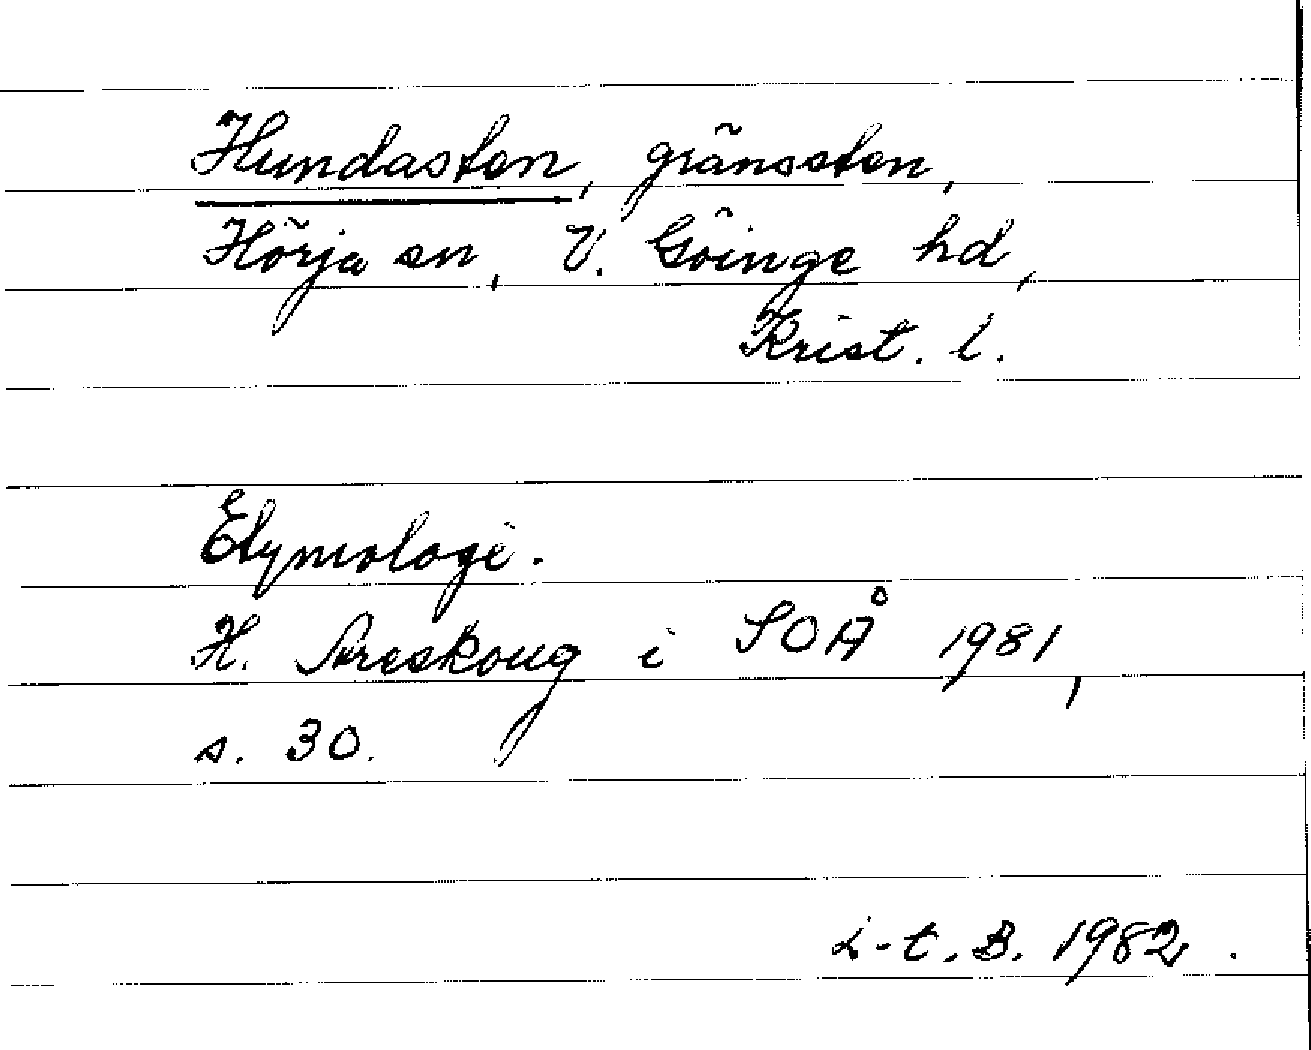 Hundasten, gränssten,
Hörja sn, V. Göinge hd,
Krist. l.
Etymologi.
H. Areskoug i SOÅ 1981,
s. 30.
L-t. B. 1982.